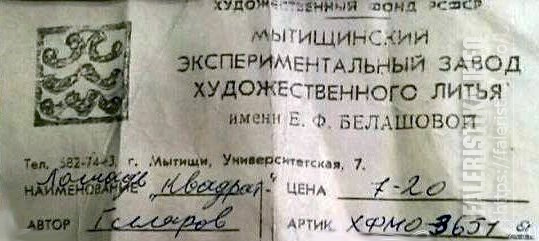 ХУДОЖЕСТВЕННЫЙ ФОНД РСФСР
МЫТИЩИНСКИЙ
ЭКСПЕРИМЕНТАЛЬНЫЙ ЗАВОД
ХУДОЖЕСТВЕННОГО ЛИТЬЯ
имени Е. Ф. БЕЛАШОВОЙ
Тел. 582-74-43, г. Мытищи, Университетская, 7.
НАИМЕНОВАНИЕ Лошадь "Квадрат" ЦЕНА 7-20
АВТОР Гиляров АРТИК. ХФМО 3651